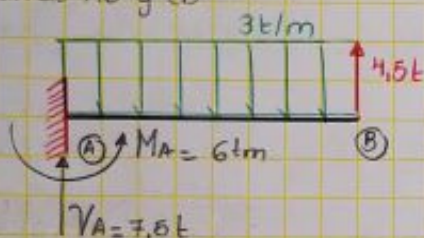 3t/m
4,5t
A MA = 6tm B
VA = 7,5t